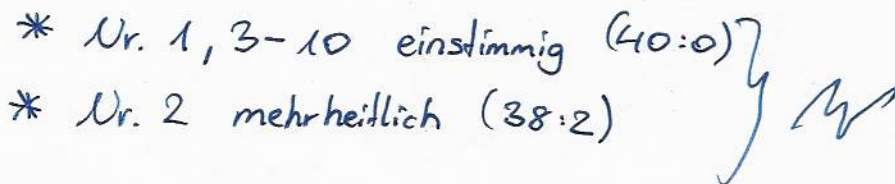 * Nr. 1, 3-10 einstimmig (40:0)
* Nr. 2 mehrheitlich (38:2)